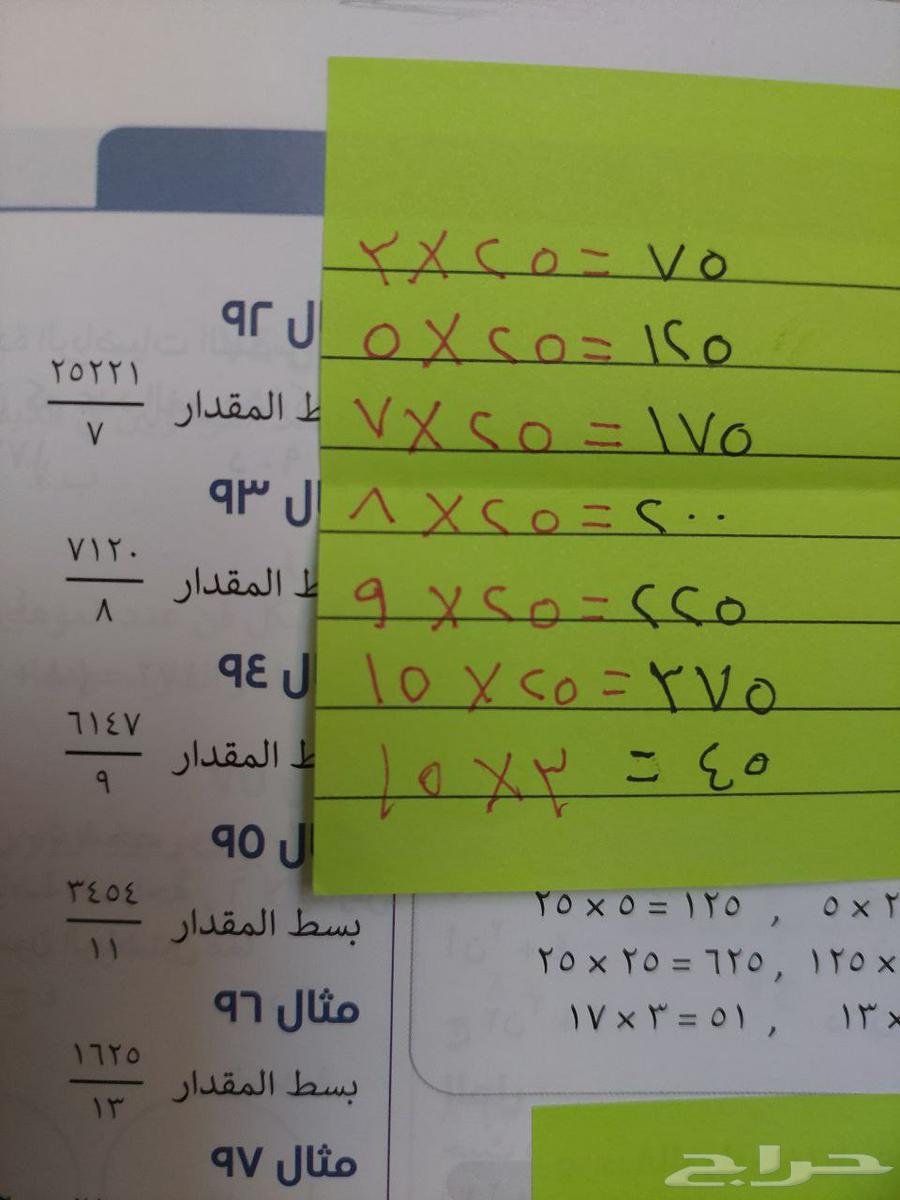 ٣ × ٢٥ = ٧٥
٥ × ٢٥ = ١٢٥
٧ × ٢٥ = ١٧٥
٨ × ٢٥ = ٢٠٠
٩ × ٢٥ = ٢٢٥
١٥ × ٢٥ = ٣٧٥
١٥ × ٣ = ٤٥
ال ٩٢
ط المقدار ٢٥٢٢١
٧
ال ٩٣
ط المقدار ٧١٢٠
٨
ال ٩٤
ط المقدار ٦١٤٧
٩
ال ٩٥
بسط المقدار ٣٤٥٤
١١
مثال ٩٦
بسط المقدار ١٦٢٥
١٣
مثال ٩٧
٢٥ × ٥ = ١٢٥ , ٥ × ٢
٢٥ × ٢٥ = ٦٢٥ , ١٢٥ ×
١٧ × ٣ = ٥١ , ١٣ ×
حراج